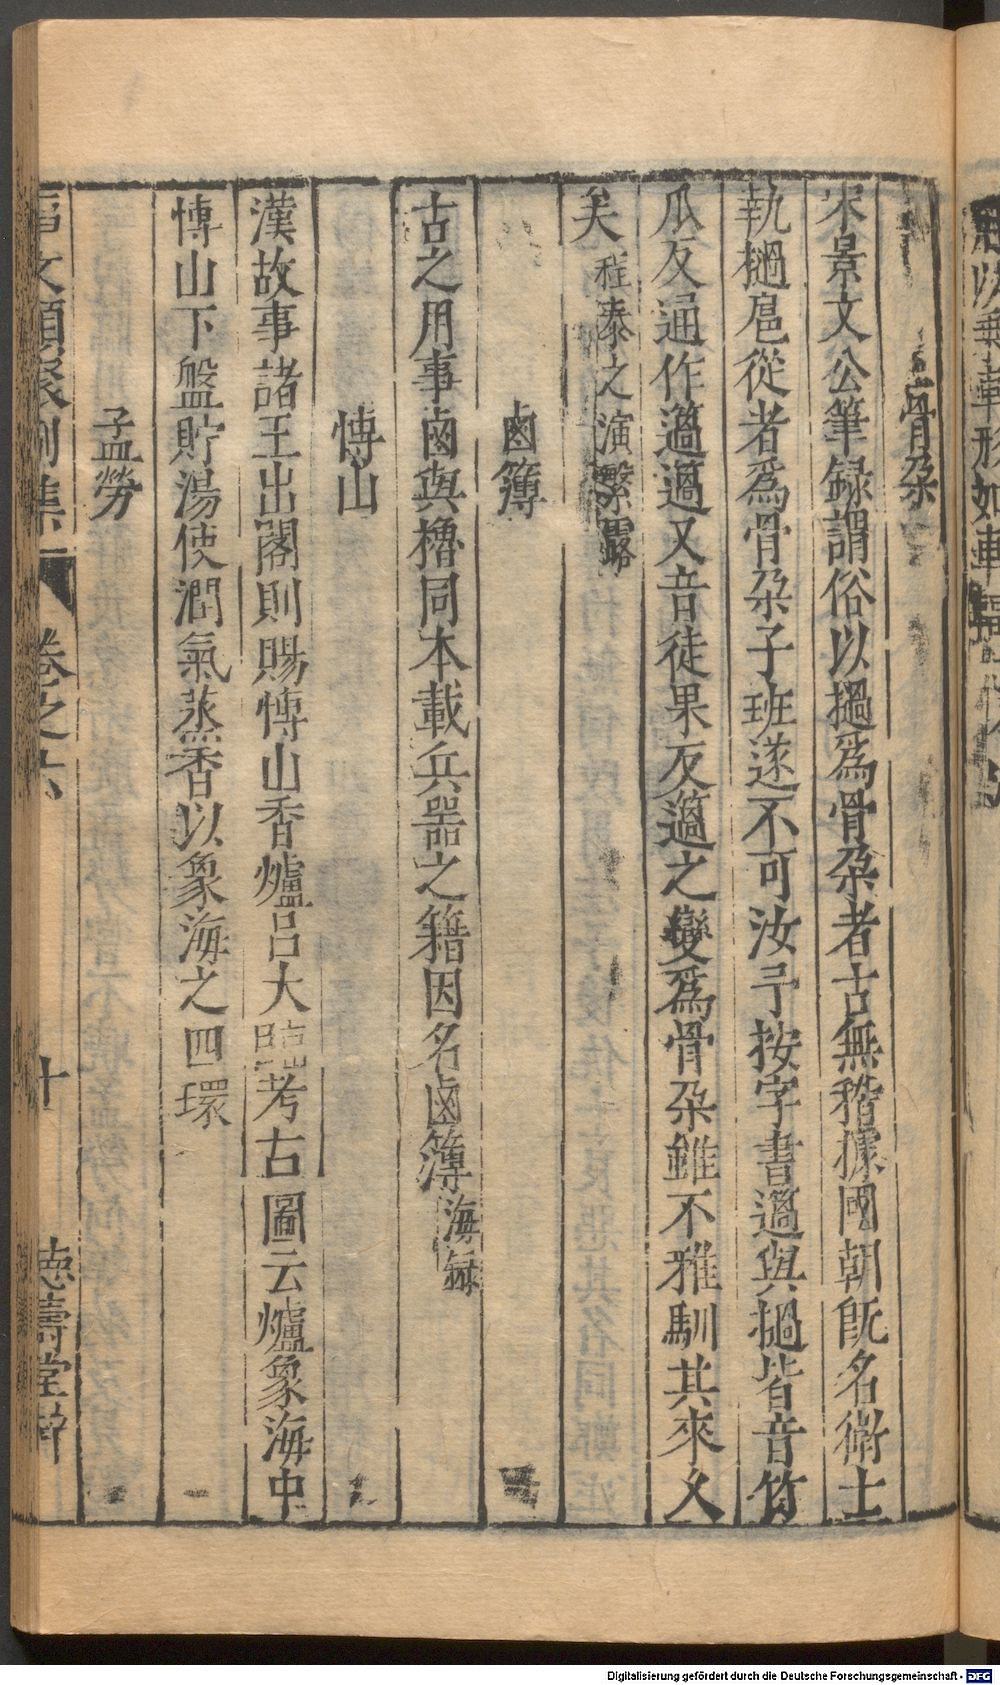 骨朶
宋景文公筆録謂俗以撾爲骨朶者古無稽據國朝旣名衛士
執撾扈從者爲骨朶子班遂不可汝予按字書薖與撾皆音竹
瓜反通作薖薖又音徒果反薖之變爲骨朶雖不雅馴其來久
矣程泰之演繁露
鹵簿
古之用事鹵與櫓同本載兵器之籍因名鹵簿海録
博山
漢故事諸王出閣則賜博山香爐吕大臨考古圖云爐象海中
博山下盤貯湯使潤氣蒸香以象海之四環
孟勞
事文類聚别集
卷之六
十
德壽堂梓
Digitalisierung gefördert durch die Deutsche Forschungsgemeinschaft - DFG